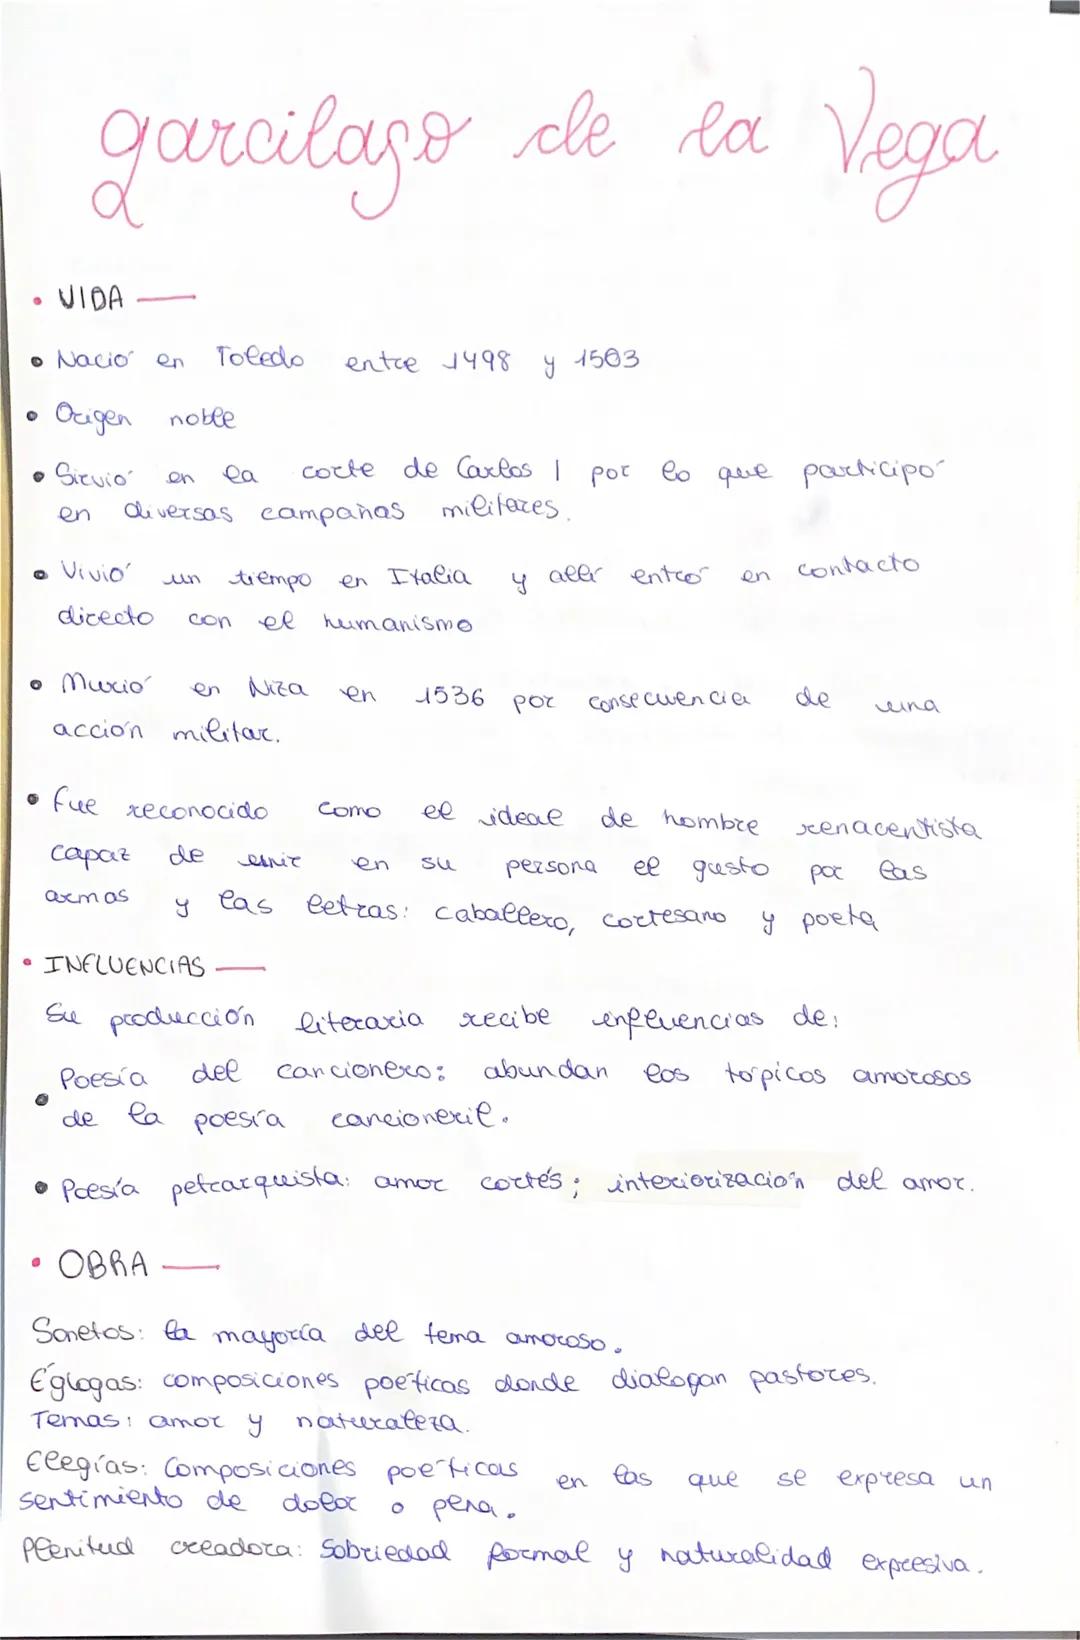 garcilaso de la Vega
• VIDA —
• Nació en Toledo entre 1498 y 1503
• Origen noble
• Sirvió en la corte de Carlos I por lo que participó
en diversas campañas militares.
• Vivió un tiempo en Italia y allí entró en contacto
directo con el humanismo
• Murió en Niza en 1536 por consecuencia de una
acción militar.
• Fue reconocido como el ideal de hombre renacentista
capaz de unir en su persona el gusto por las
armas y las letras: caballero, cortesano y poeta
• INFLUENCIAS —
Su producción literaria recibe influencias de:
• Poesía del cancionero: abundan los tópicos amorosos
de la poesía cancioneril.
• Poesía petrarquista: amor cortés; interiorización del amor.
• OBRA —
Sonetos: la mayoría del tema amoroso.
Églogas: composiciones poéticas donde dialogan pastores.
Temas: amor y naturaleza.
Elegías: Composiciones poéticas en las que se expresa un
sentimiento de dolor o pena.
Plenitud creadora: Sobriedad formal y naturalidad expresiva.